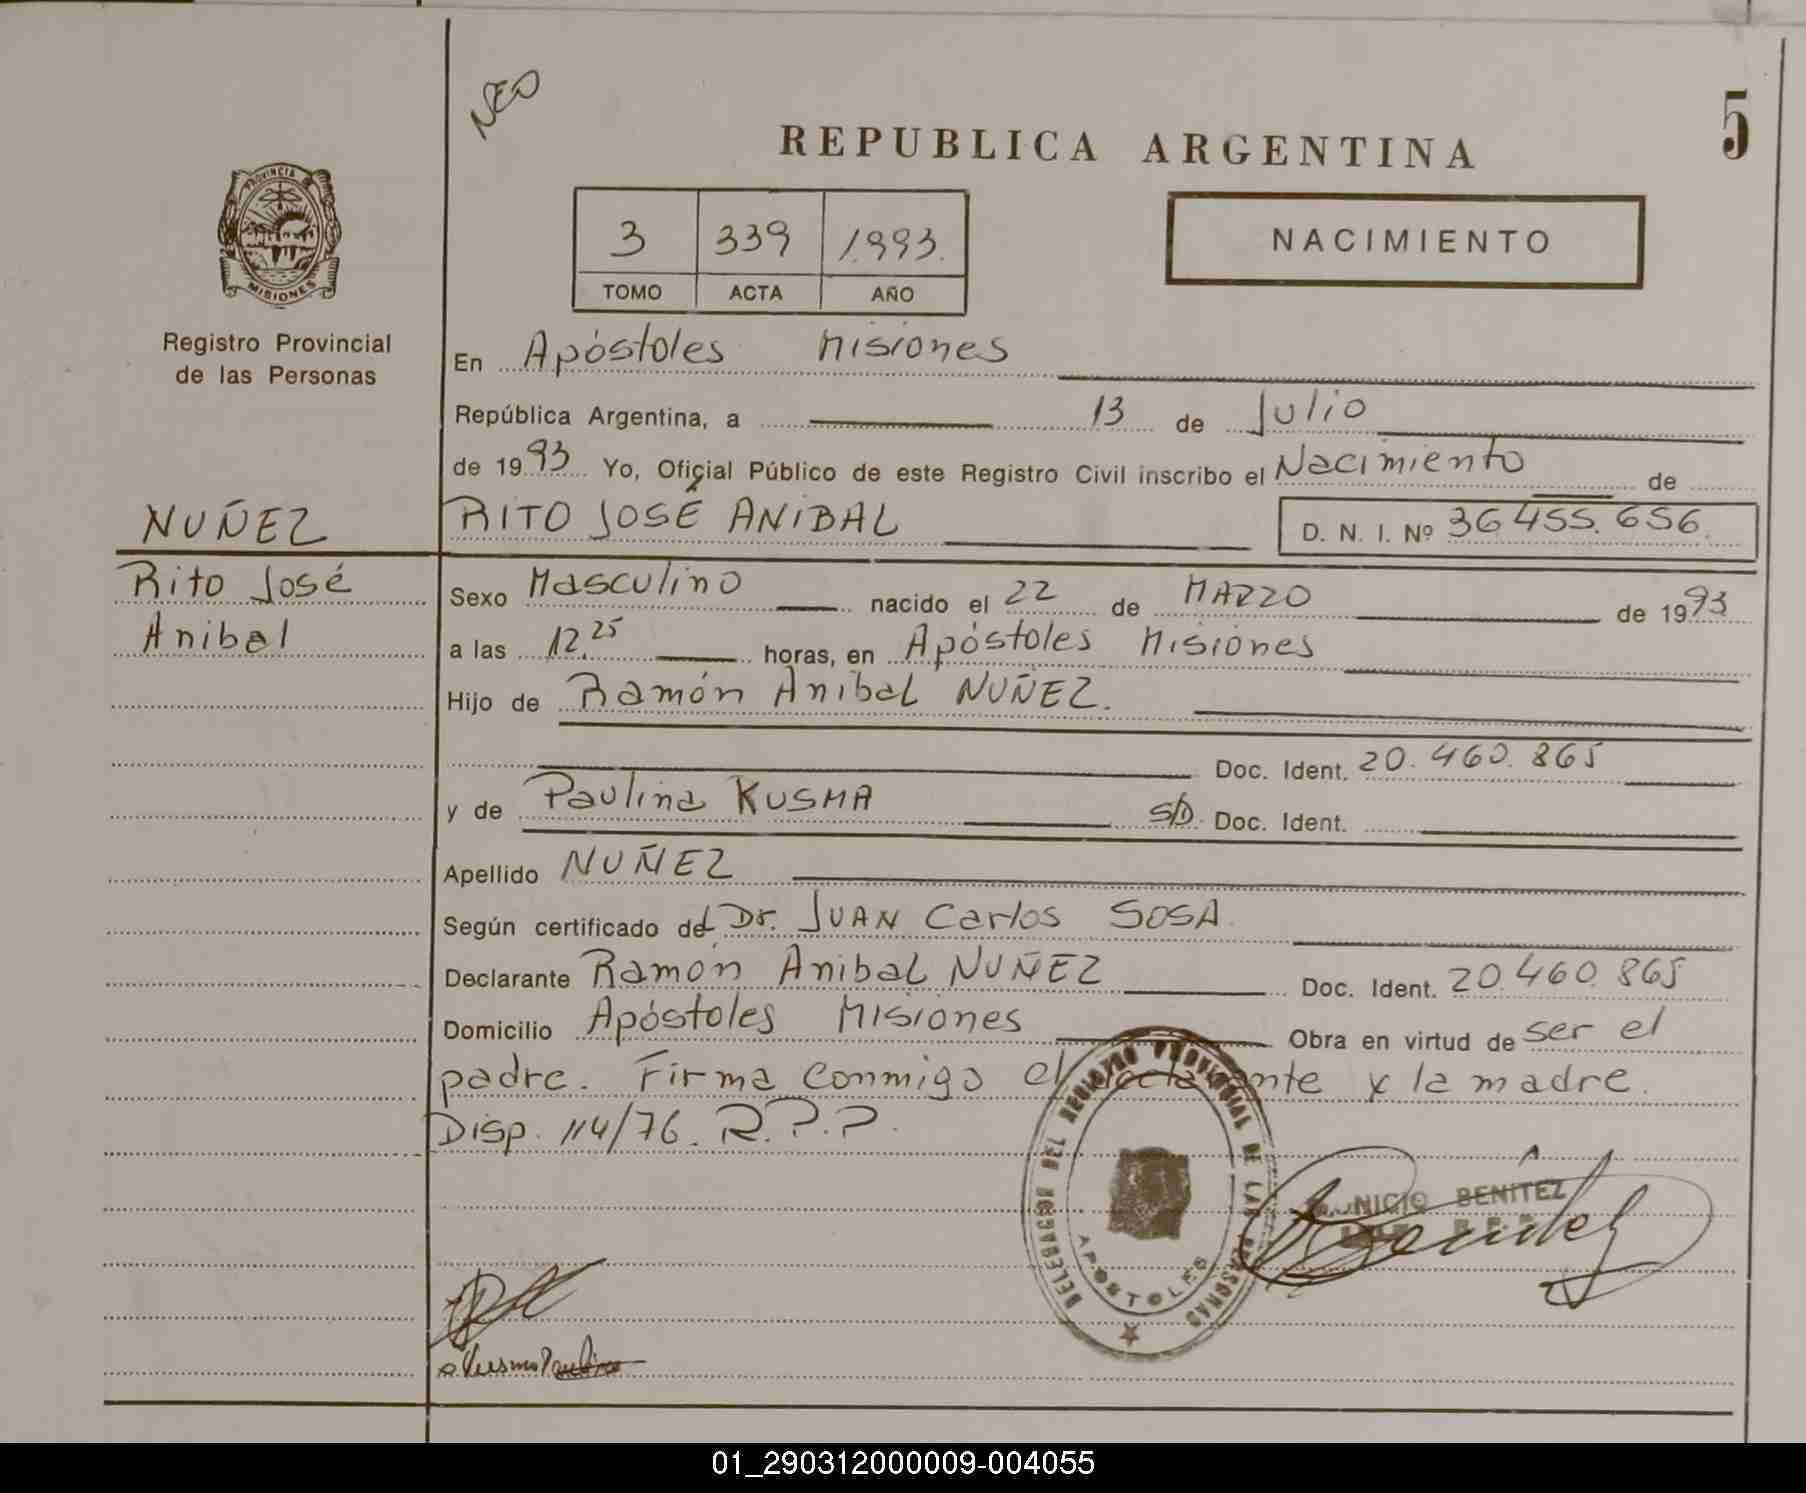 NEO
5
REPUBLICA ARGENTINA
PROVINCIA
MISIONES
Registro Provincial
de las Personas
3 339 1.993.
TOMO ACTA AÑO
NACIMIENTO
En Apóstoles Misiones
República Argentina, a 13 de Julio
de 1993 Yo, Oficial Público de este Registro Civil inscribo el Nacimiento de
NUÑEZ
RITO JOSÉ ANIBAL D. N. I. Nº 36455.656.
Rito José
Anibal
Sexo Masculino nacido el 22 de MARZO de 1993
a las 12.25 horas, en Apóstoles Misiones
Hijo de Ramón Anibal NUÑEZ.
Doc. Ident. 20.460.865
y de Paulina KUSMA S/D. Doc. Ident.
Apellido NUÑEZ
Según certificado del Dr. JUAN Carlos SOSA.
Declarante Ramón Anibal NUÑEZ Doc. Ident. 20.460.865
Domicilio Apóstoles Misiones Obra en virtud de ser el
padre. Firma conmigo el declarante y la madre.
Disp. 114/76. R.P.P.
DEL REGISTRO PROVINCIAL DE LAS PERSONAS
APOSTOLES
BENITEZ
Kusma Paulina
01_290312000009-004055